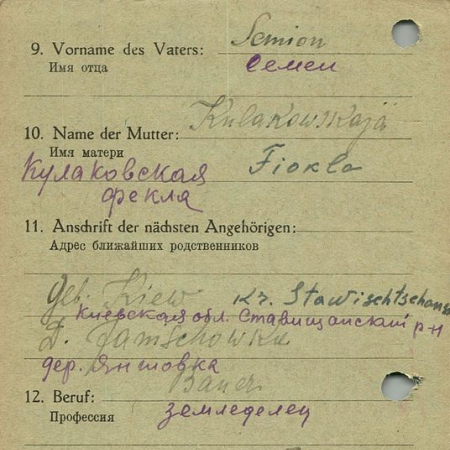 9. Vorname des Vaters: Semion
Имя отца Семен
Kulakowskajä
10. Name der Mutter:
Имя матери Fiokla
Кулаковская
фекла
11. Anschrift der nächsten Angehörigen:
Адрес ближайших родственников
Geb. Kiew kr. Stawischtschansk
Киевская обл. Ставищанский р-н
D. Jamschowka
дер. Яншовка
Bauer
12. Beruf:
Профессия земледелец